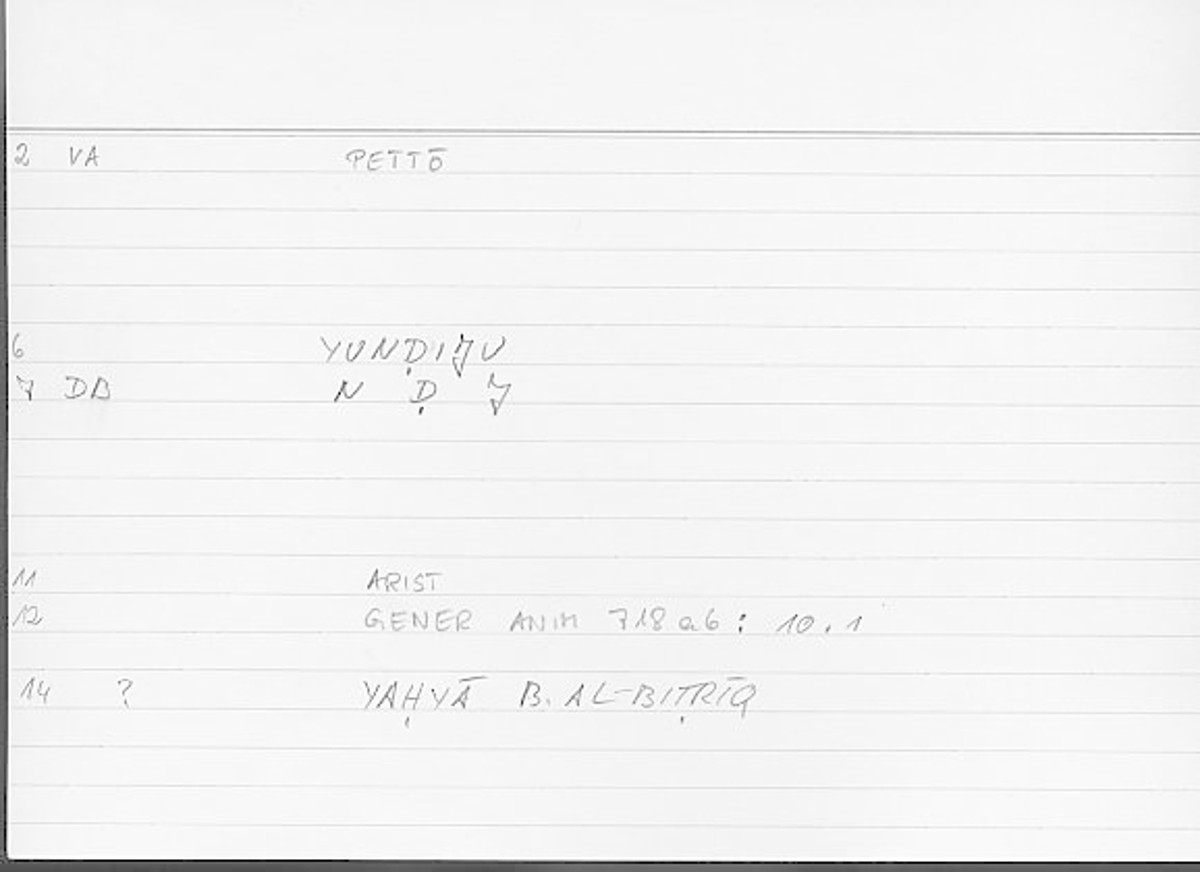 2 VA PETTŌ
6 YUNḌIJU
7 DB N Ḍ J
11 ARIST
12 GENER ANIM 718a6 : 10.1
14 ? YAḤYĀ B. AL-BIṬRĪQ